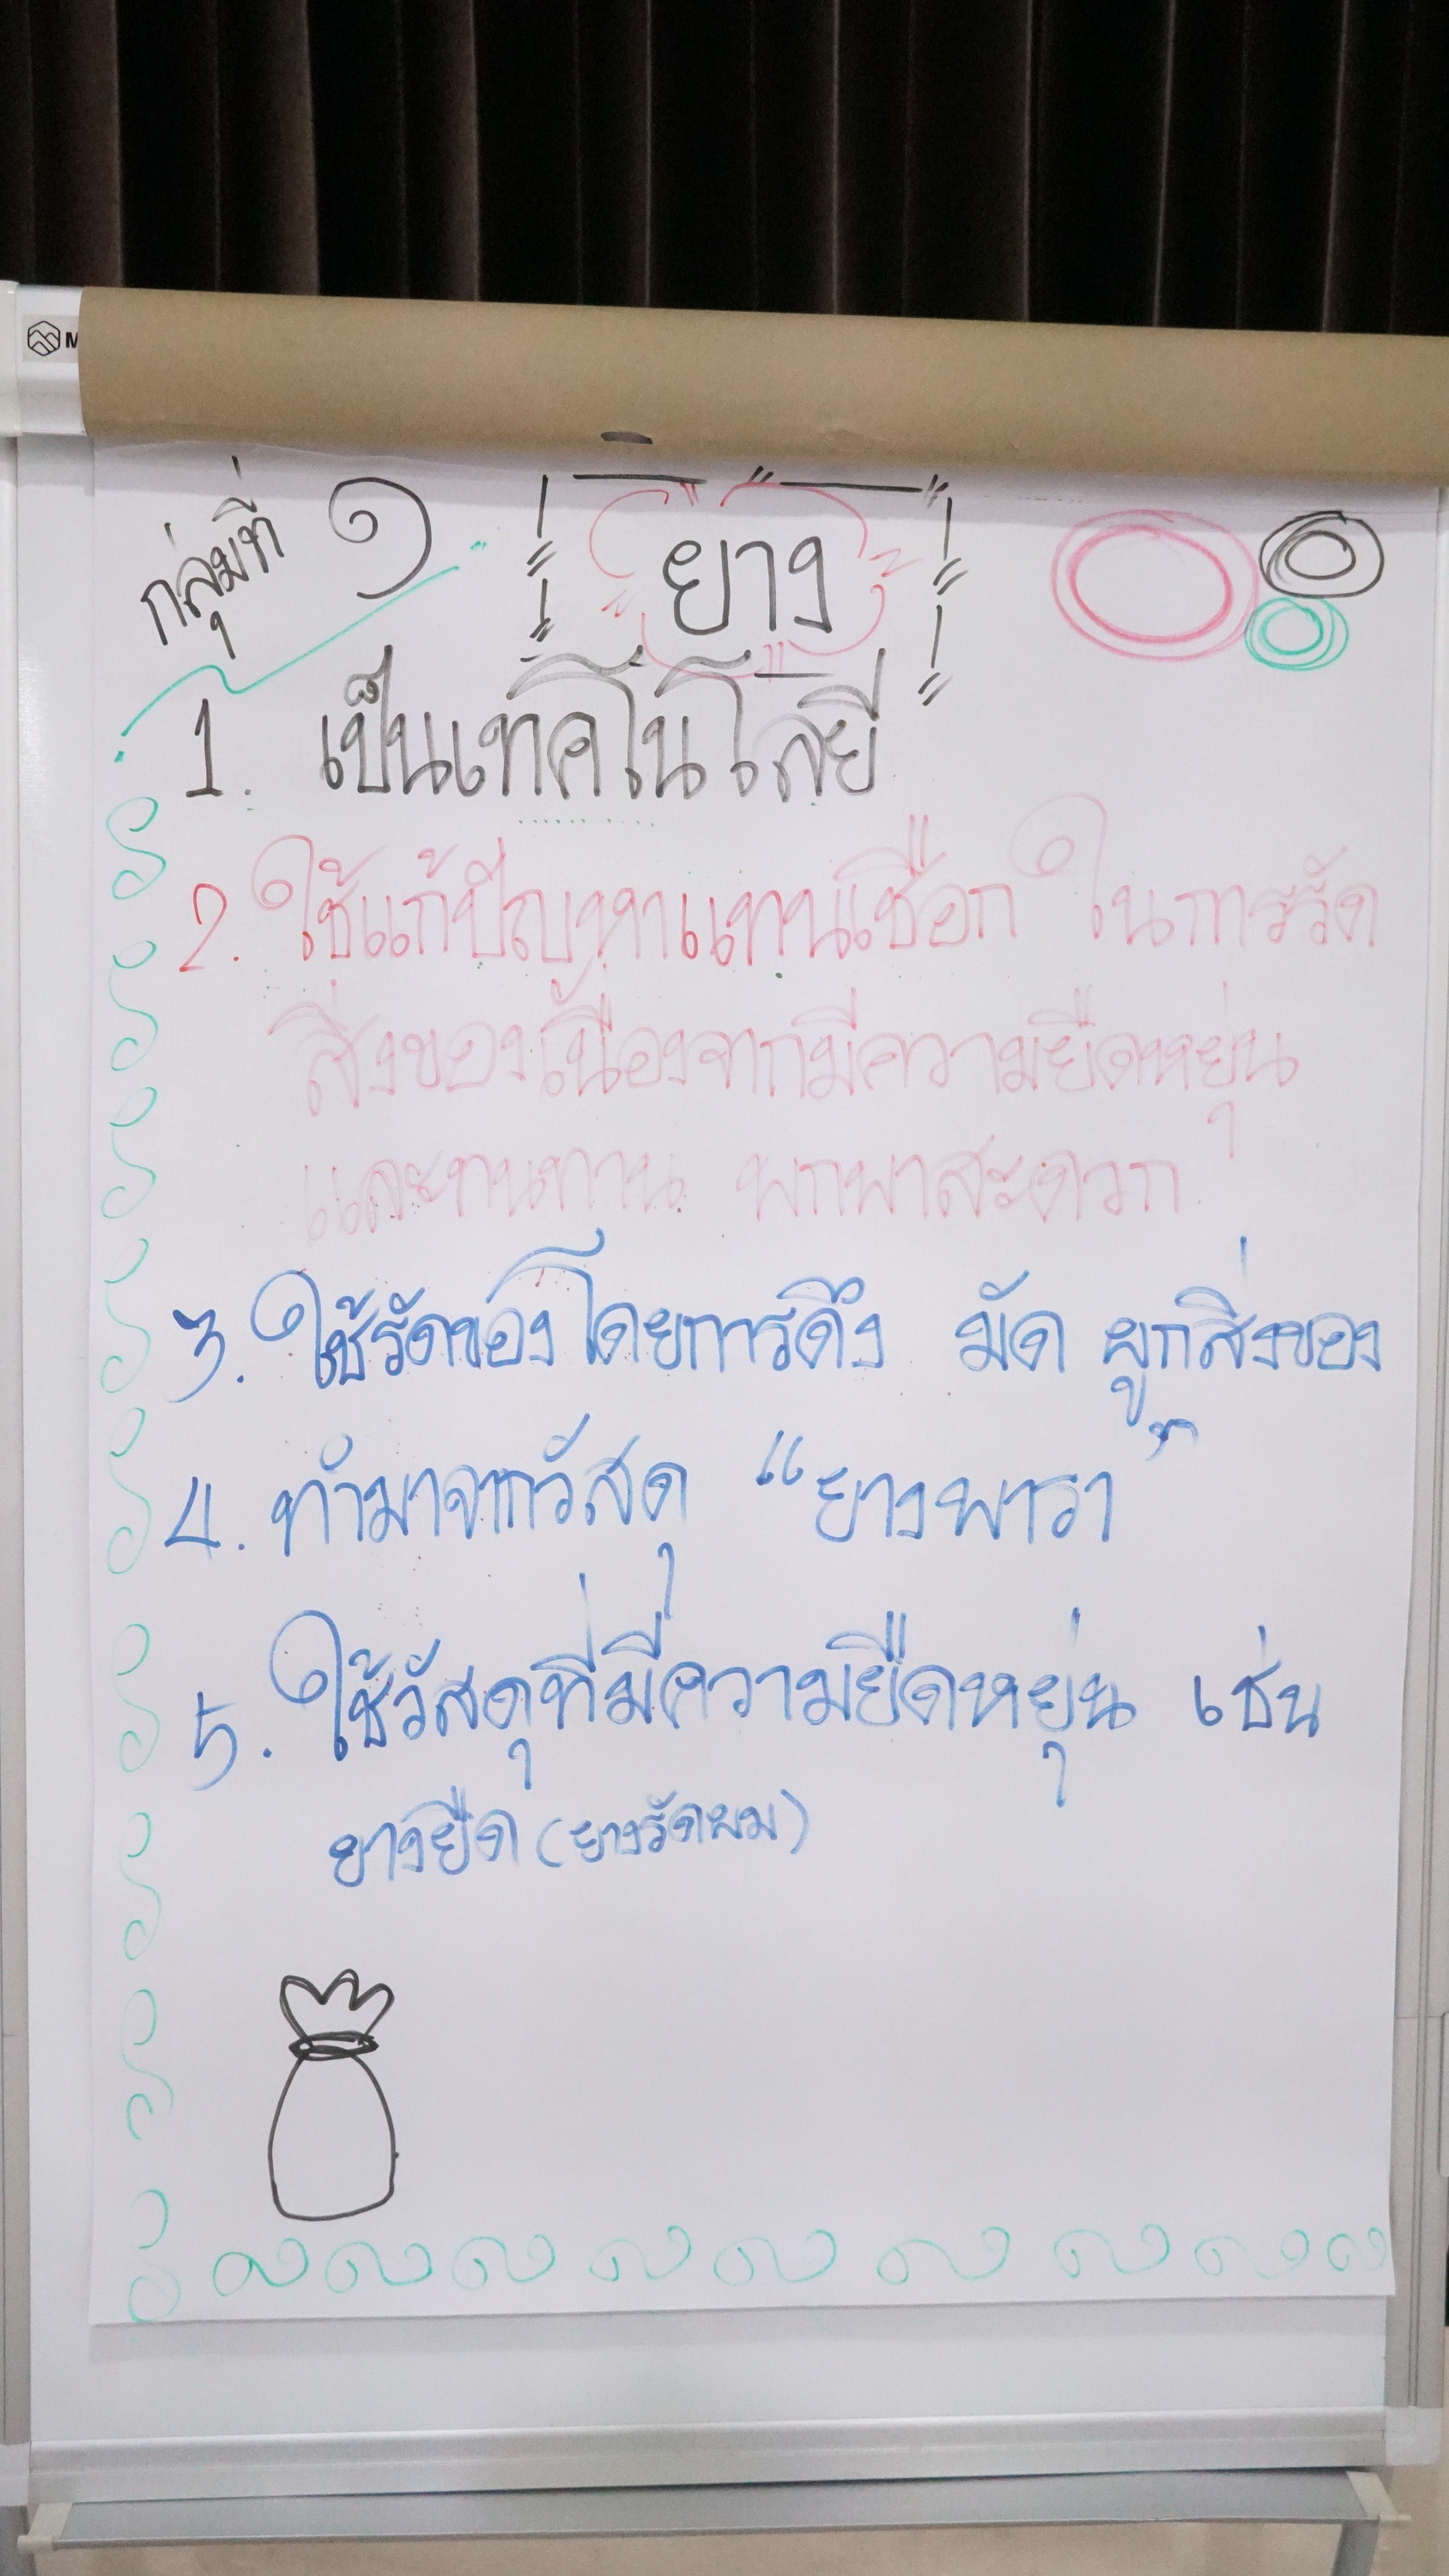 M
กลุ่มที่ ๑
ยาง
1. เป็นเทคโนโลยี
2. ใช้แก้ปัญหาแทนเชือก ในการรัด
สิ่งของเนื่องจากมีความยืดหยุ่น
และทนทาน พกพาสะดวก
3. ใช้รัดของโดยการดึง มัด ผูกสิ่งของ
4. ทำมาจากวัสดุ "ยางพารา"
5. ใช้วัสดุที่มีความยืดหยุ่น เช่น
ยางยืด (ยางรัดผม)